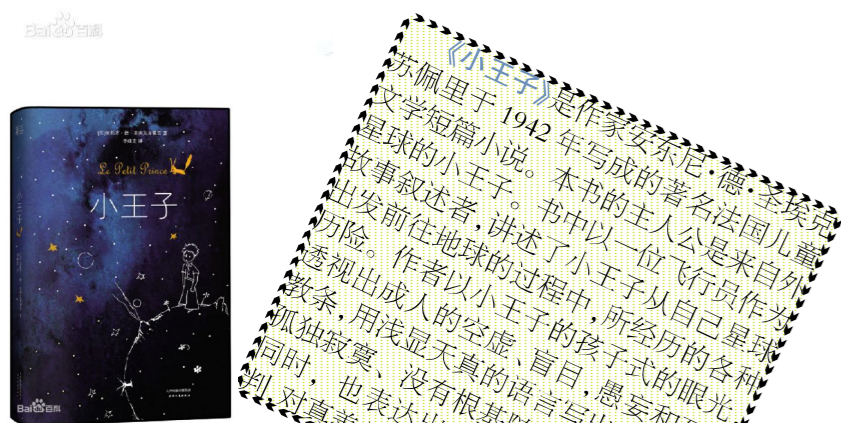 Baidu百科
Le Petit Prince
小王子
小王子
Baidu百科
《小王子》是作家安东尼·德·圣埃克
苏佩里于 1942 年写成的著名法国儿童
文学短篇小说。本书的主人公是来自外
星球的小王子。书中以一位飞行员作为
故事叙述者,讲述了小王子从自己星球
出发前往地球的过程中,所经历的各种
历险。作者以小王子的孩子式的眼光,
透视出成人的空虚、盲目,愚妄和
教条,用浅显天真的语言写出
孤独寂寞、没有根基
同时,也表达出
判,对真善